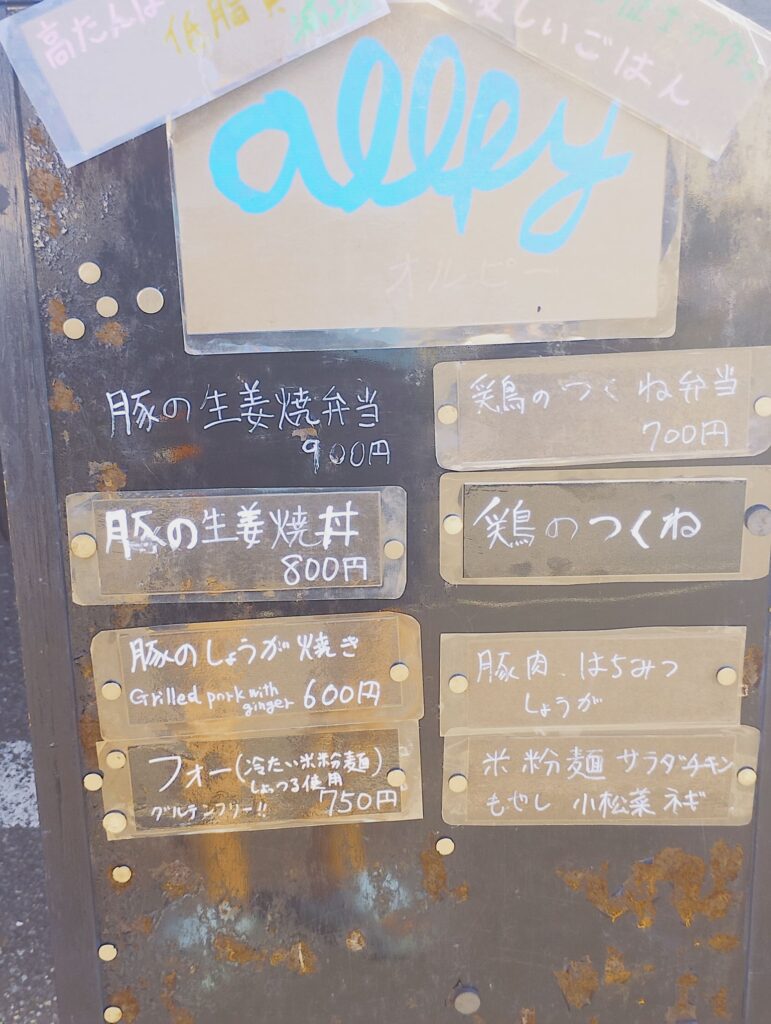 高たんぱ
低脂質
優しいごはん
allpy
オルピー
豚の生姜焼弁当
900円
鶏のつくね弁当
700円
豚の生姜焼丼
800円
鶏のつくね
豚のしょうが焼き
Grilled pork with ginger 600円
豚肉、はちみつ
しょうが
フォー(冷たい米粉麺)
しょっつる使用
グルテンフリー!! 750円
米粉麺 サラダチキン
もやし 小松菜 ネギ